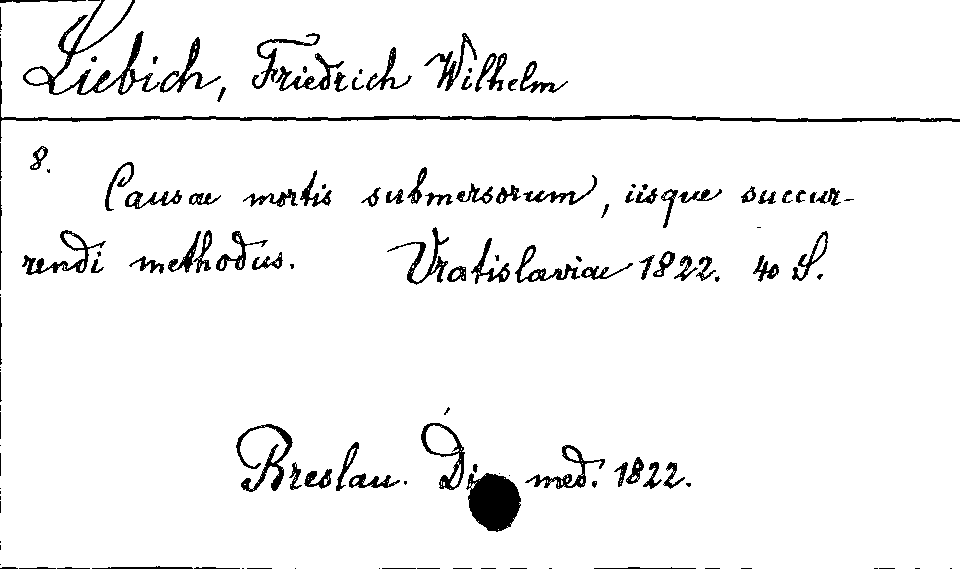 Liebich, Friedrich Wilhelm
8.
Causae mortis submersorum, iisque succur-
rendi methodus. Vratislaviae 1822. 40 S.
Breslau. med. 1822.